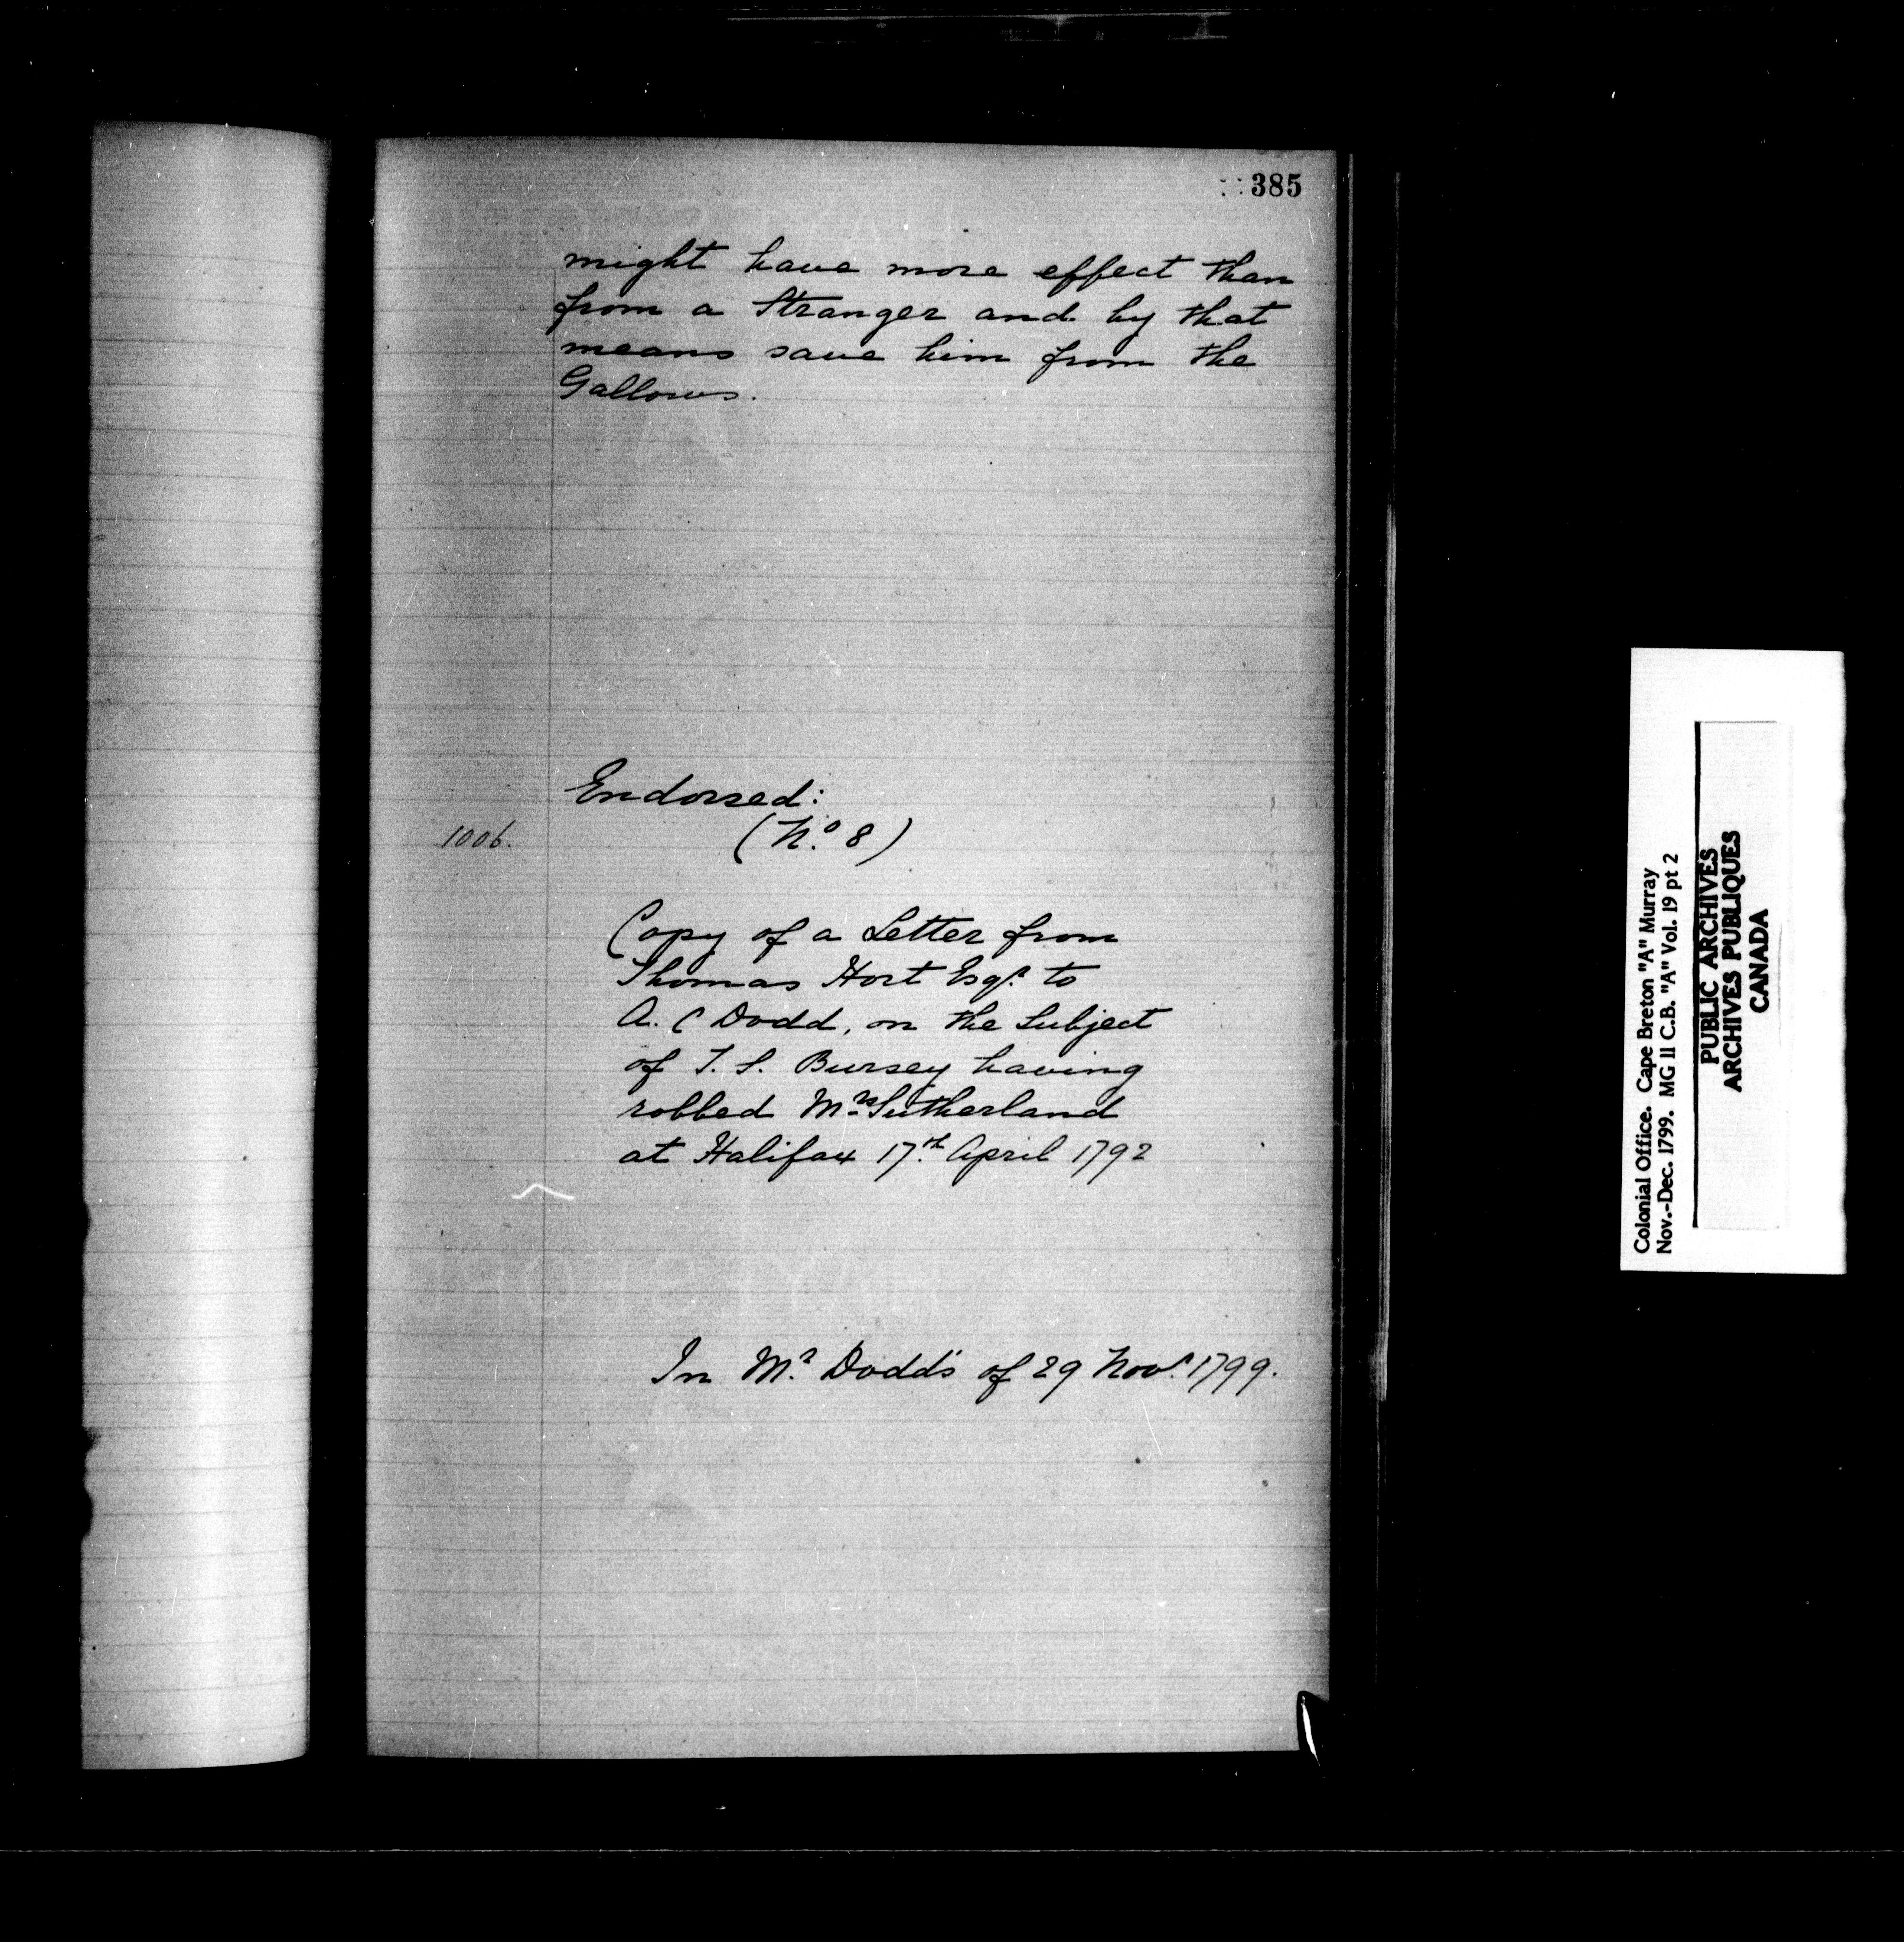 385
might have more effect than
from a Stranger and by that
means save him from the
Gallows.
Endorsed:
1006.
(No. 8)
Copy of a Letter from
Thomas Hort Esqr. to
A. C Dodd, on the Subject
of T. S. Bursey having
robbed Mrs Sutherland
at Halifax 17th. April 1792
In Mr. Dodd's of 29 Novr. 1799.
Colonial Office. Cape Breton "A" Murray
Nov.-Dec. 1799. MG 11 C.B. "A" Vol. 19 pt 2
PUBLIC ARCHIVES
ARCHIVES PUBLIQUES
CANADA